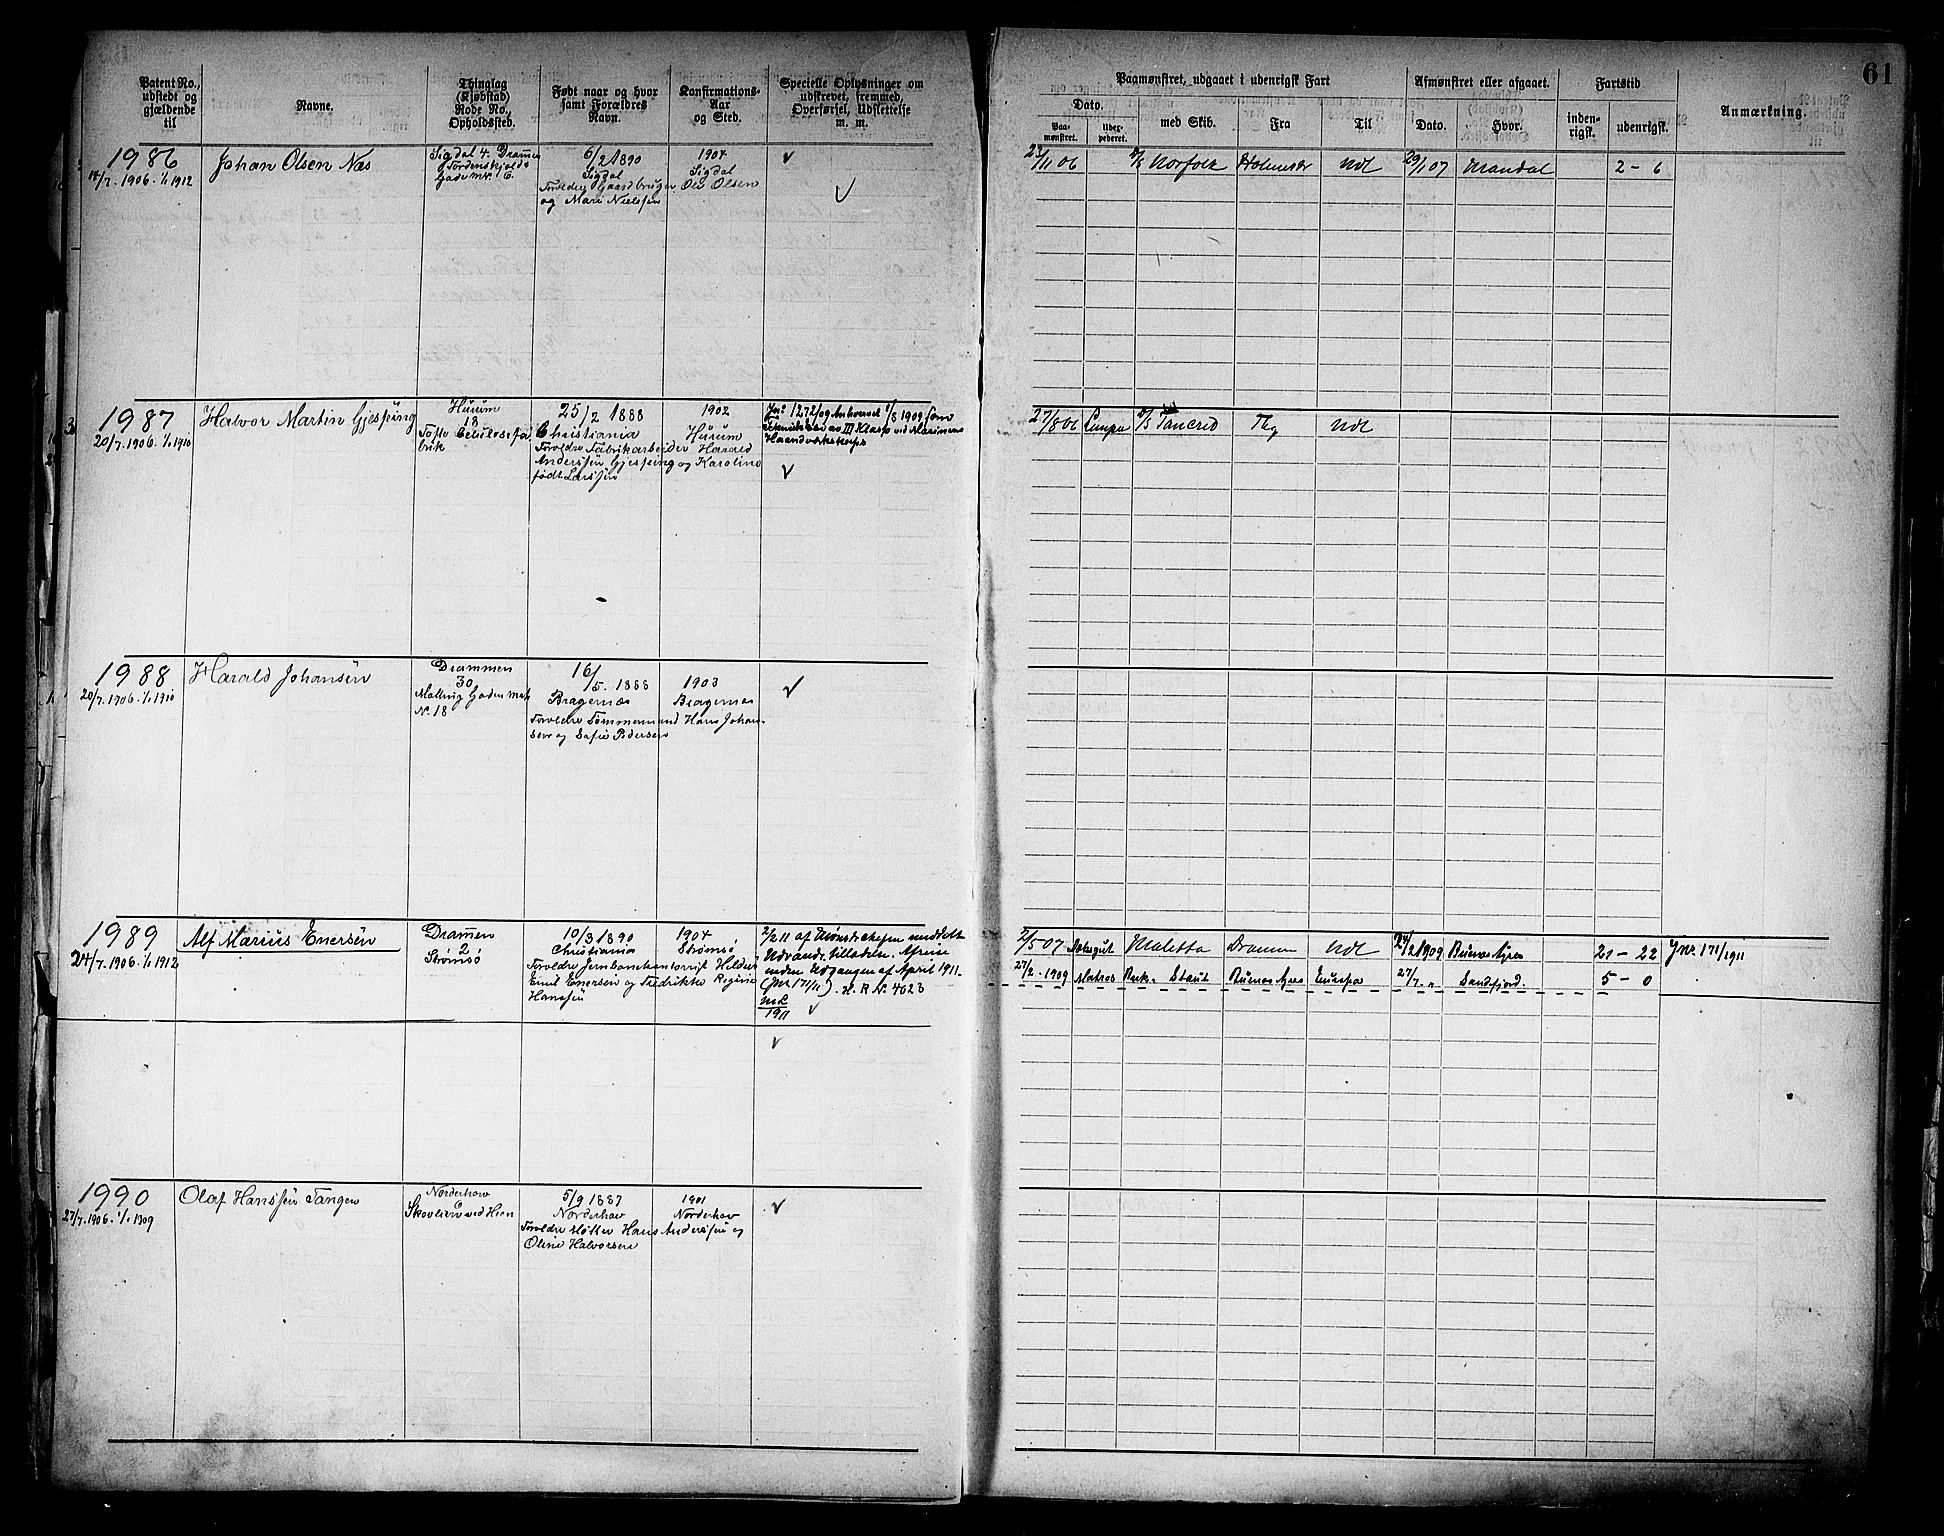 61
Patent No., udstedt og gjældende til
Navne.
Thinglag (Kjøbstad) Rode No., Opholdssted.
Født naar og hvor samt Forældres Navn.
Konfirmations- Aar og Sted.
Specielle Oplysninger om udskrevet, fremmed, Overførsel, Udslettelse m. m.
Paamønstret, udgaaet i udenrigsk Fart
Dato.
Paa- mønstret.
med Skib.
Fra
Til
Afmønstret eller afgaaet.
Dato.
Hvor.
Fartstid
inden- rigsk.
udenrigsk.
Anmærkning.
1986
1906. 1/1 1912
Johan Olsen Næs
Sigdal 4. Drammen
Tordenskjolds
Gade
6/2 1890
Sigdal
Forældre Gaardbruger Ole Olsen
og Mari Nielsen
1904
Sigdal
23/11 06
Norfolk
Ndl
29/1 07
Mandal
2 - 6
1987
20/7. 1906. 1/1 1910
Halvor Martin Gjesping
Hurum
18
Tofte Celulosefa
brik
25/2 1888
Christiania
Forældre Fabrikarbeider Harald
Anderssen Gjesping og Karoline
født Larssen
1902
Hurum
1272/09 Ankommet 1/8 1909 som
III Klasse ved Marinens
Haandværkskorps
27/8 06
Lempe
D/S Tancred
Tbg
Ndl
1988
20/7. 1906. 1/1 1910
Harald Johansen
Drammen
30
Gaden
No. 18
16/5. 1888
Bragernæs
Forældre Tømmermand Hans Johan-
sen og Sofie Pedersen
1903
Bragernæs
1989
24/7. 1906. 1/1 1912
Alf Marius Enersen
Drammen
2
Strømsø
10/3 1890
Christiania
Forældre Jernbanekontorist Helder
Emil Enersen og Fredrikke Regine
Hanssen
1904
Strømsø
2/2 11 af Mønst.chefen meddelt
Udvandr. tilladelse. Afreise
inden Udgangen af April 1911.
(Jnr 171/11). H. R. N. 4023
1911
2/5 07
Maletta
Drammen
Ndl
24/2 1909
Buenos Ayres
21 - 22
Jnr. 171/1911
27/2 - 1909
Matros
Bark
Staut
Buenos Ayres
Europa
27/7. "
Sandfjord.
5 - 0
1990
27/7. 1906. 1/1 1909
Olaf Hanssen Tangen
Norderhov
Skovlien ved Hønen
5/9 1887
Norderhov
Forældre Hans Anderssen og
Oline Halvorsen
1901
Norderhov